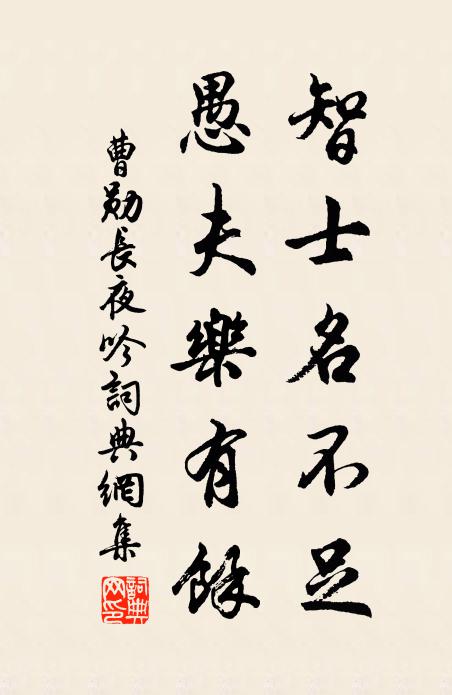 智士名不足
愚夫樂有餘
曹勛長夜吟詞典網集
詞典网印